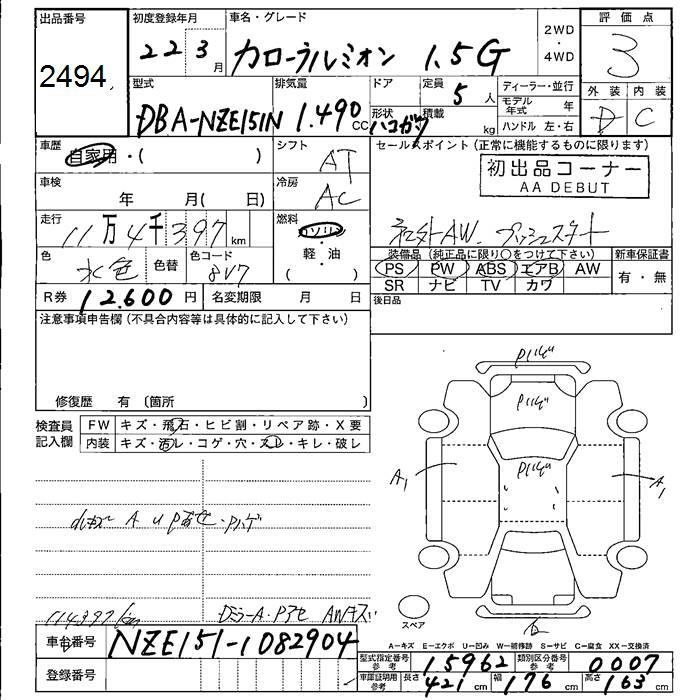 出品番号
2494
初度登録年月
22 3月
車名・グレード
カローラルミオン 1.5G
2WD
・
4WD
評価点
3
外装 内装
D C
型式
DBA-NZE151N
排気量
1.490cc
ドア
形状
ハコガタ
定員
5人
積載
kg
ディーラー・並行
モデル年式 年
ハンドル 左・右
車歴
自家用・( )
シフト
AT
車検
年 月( 日)
冷房
AC
走行
11万4千397km
燃料
ガソリン
・
軽・油
( )
色
水色
色替
色コード
8V7
R券 12.600円
名変期限 月 日
セールスポイント(正常に機能するものに限ります)
初出品コーナー
AA DEBUT
社外AW. プッシュスタート
装備品(純正品に限り○をつけて下さい)
PS PW ABS エアB AW
SR ナビ TV カワ
新車保証書
有・無
後日品
注意事項申告欄(不具合内容等は具体的に記入して下さい)
修復歴 有 〔箇所 〕
検査員
記入欄
FW キズ・飛石・ヒビ割・リペア跡・X要
内装 キズ・汚レ・コゲ・穴・スレ・キレ・破レ
A U P
114397km
A AWキズ
A1
A1
スペア
A−キズ E−エクボ U−凹み W−補修跡 S−サビ C−腐食 XX−交換済
車台番号 NZE151-1082904
登録番号
型式指定番号 参考 15962
類別区分番号 参考 0007
車庫証明用 参考 長さ 421cm 幅 176cm 高さ 163cm